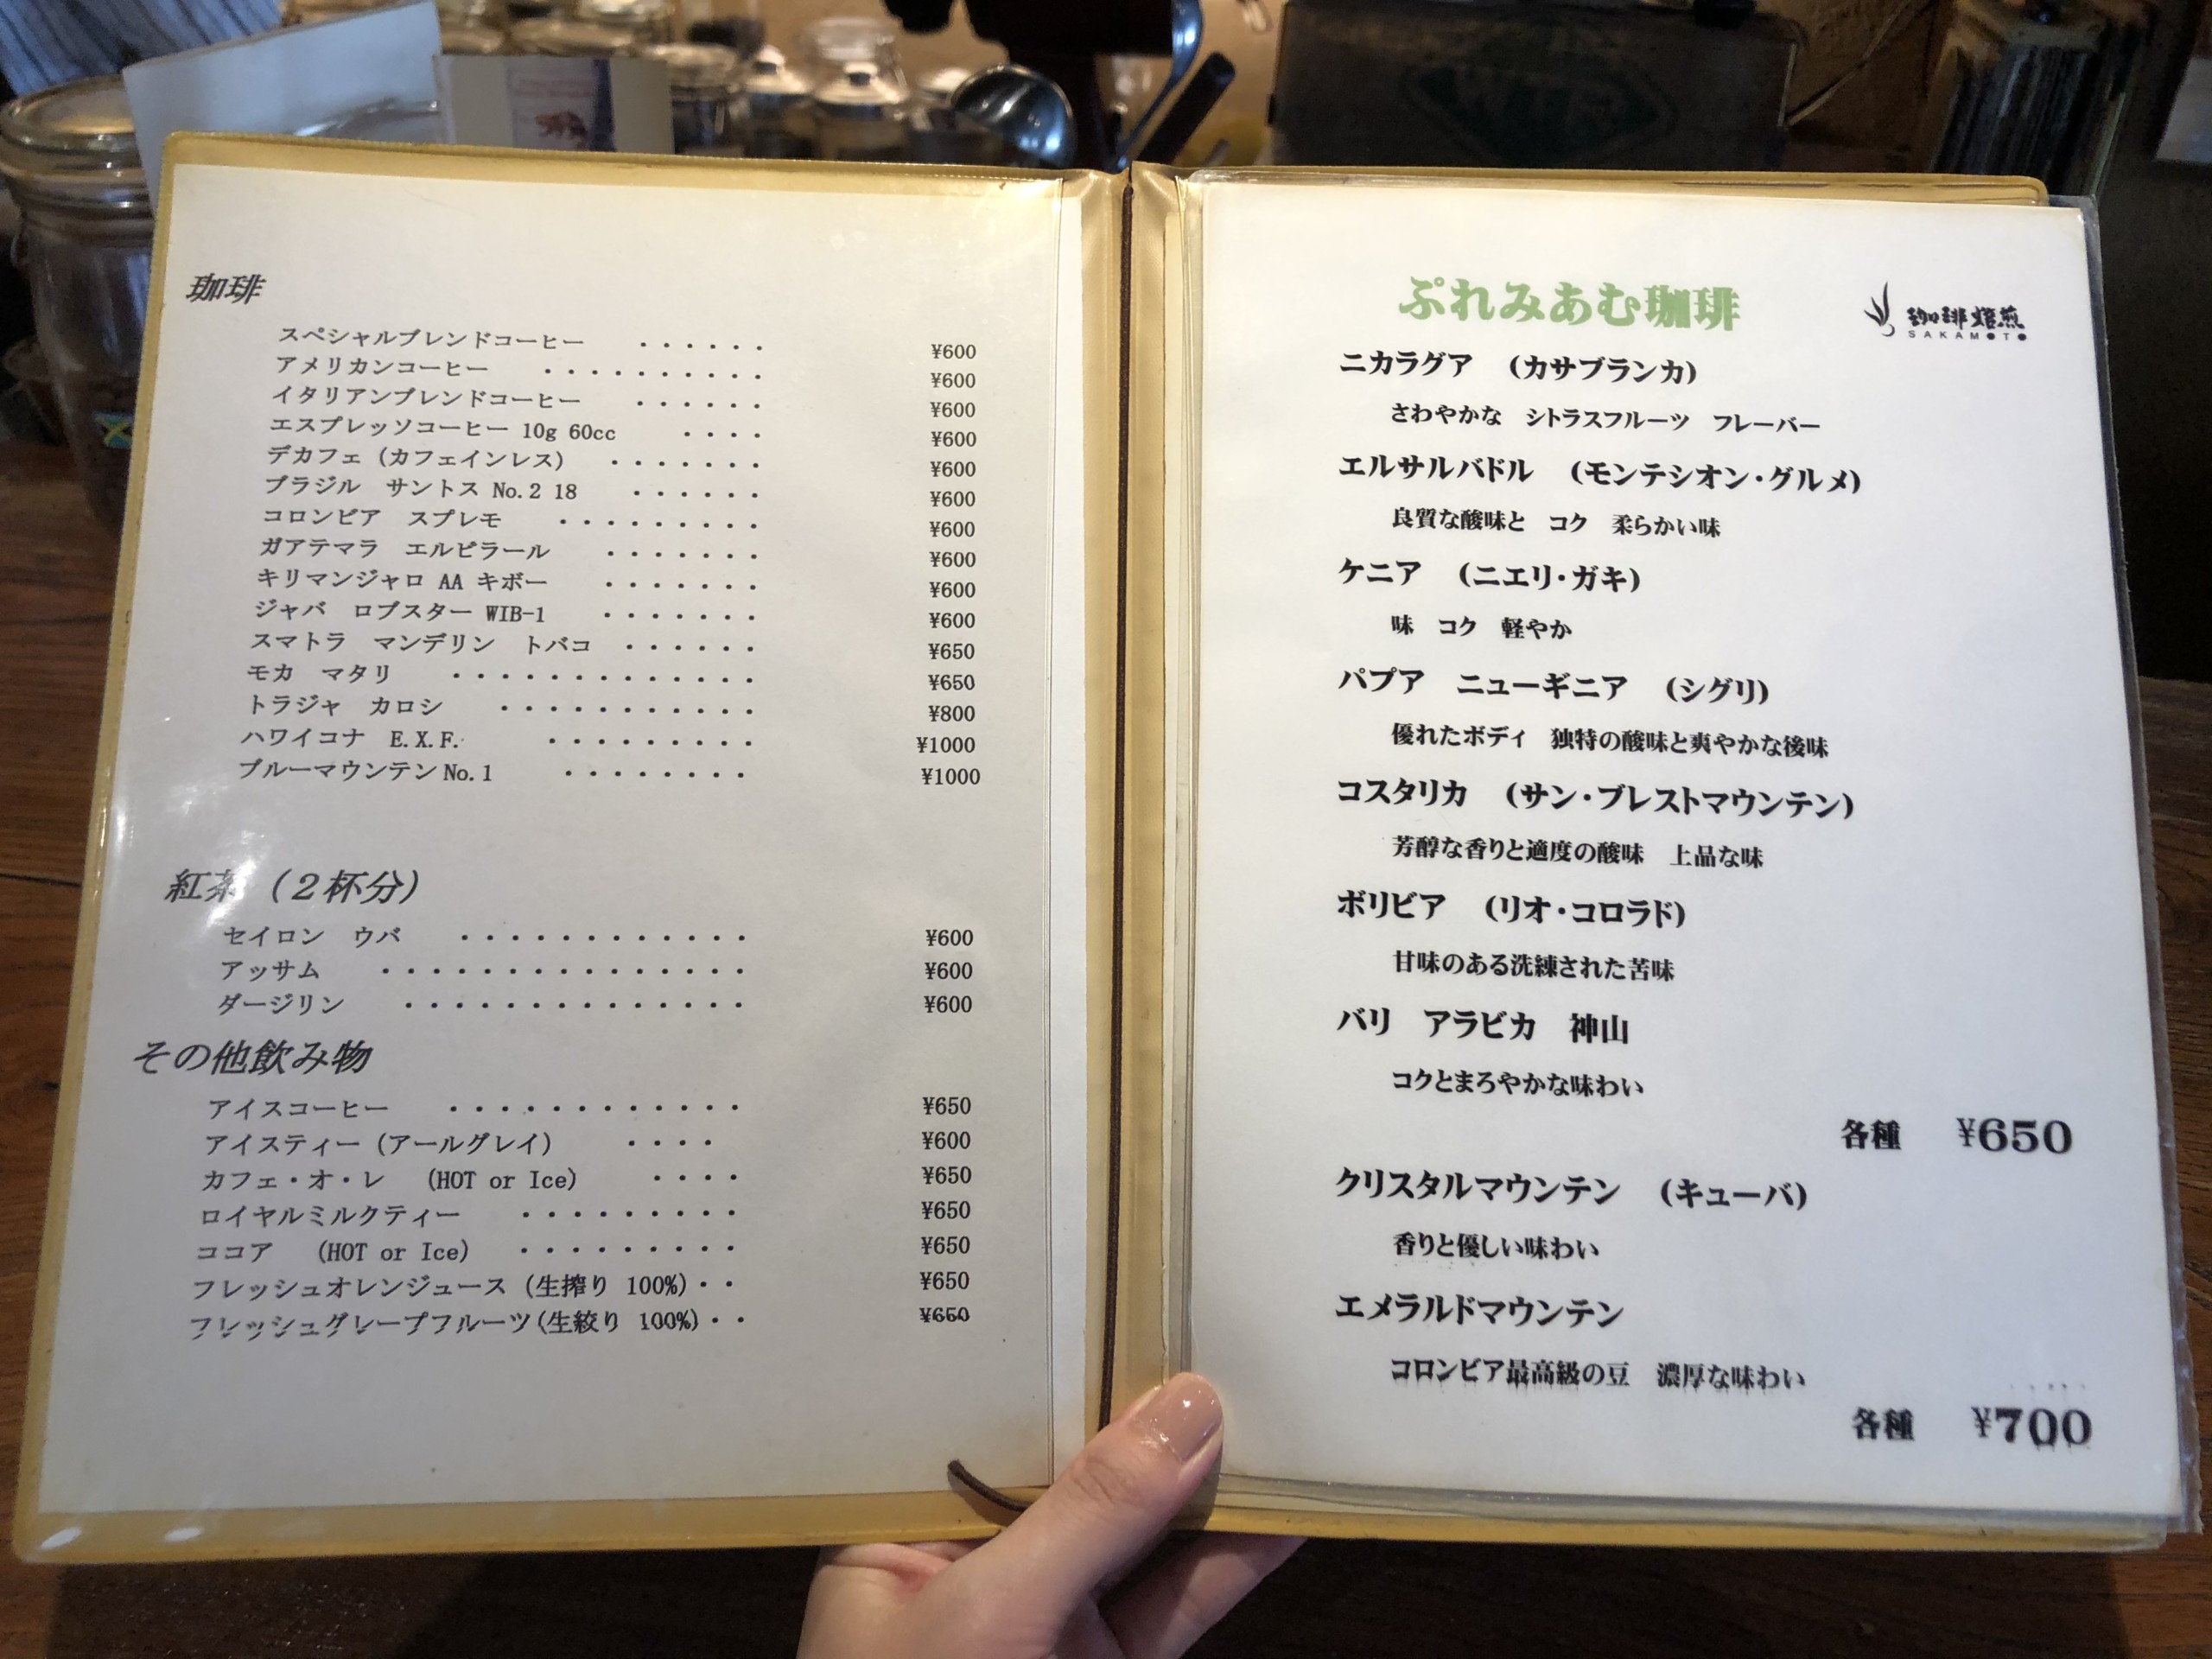 珈琲
スペシャルブレンドコーヒー ・・・・・・ ¥600
アメリカンコーヒー ・・・・・・・・・・ ¥600
イタリアンブレンドコーヒー ・・・・・・ ¥600
エスプレッソコーヒー 10g 60cc ・・・・ ¥600
デカフェ (カフェインレス) ・・・・・・・ ¥600
ブラジル サントス No.2 18 ・・・・・・ ¥600
コロンビア スプレモ ・・・・・・・・・ ¥600
ガアテマラ エルピラール ・・・・・・・ ¥600
キリマンジャロ AA キボー ・・・・・・・ ¥600
ジャバ ロブスター WIB-1 ・・・・・・・ ¥600
スマトラ マンデリン トバコ ・・・・・・ ¥650
モカ マタリ ・・・・・・・・・・・・・ ¥650
トラジャ カロシ ・・・・・・・・・・・ ¥800
ハワイコナ E.X.F. ・・・・・・・・・ ¥1000
ブルーマウンテン No.1 ・・・・・・・・ ¥1000
紅茶 (2杯分)
セイロン ウバ ・・・・・・・・・・・・ ¥600
アッサム ・・・・・・・・・・・・・・・ ¥600
ダージリン ・・・・・・・・・・・・・・ ¥600
その他飲み物
アイスコーヒー ・・・・・・・・・・・・ ¥650
アイスティー (アールグレイ) ・・・・ ¥600
カフェ・オ・レ (HOT or Ice) ・・・・ ¥650
ロイヤルミルクティー ・・・・・・・・・ ¥650
ココア (HOT or Ice) ・・・・・・・・・ ¥650
フレッシュオレンジュース (生搾り 100%)・・ ¥650
フレッシュグレープフルーツ(生絞り 100%)・・ ¥650
ぷれみあむ珈琲
珈琲焙煎
SAKAMOTO
ニカラグア (カサブランカ)
さわやかな シトラスフルーツ フレーバー
エルサルバドル (モンテシオン・グルメ)
良質な酸味と コク 柔らかい味
ケニア (ニエリ・ガキ)
味 コク 軽やか
パプア ニューギニア (シグリ)
優れたボディ 独特の酸味と爽やかな後味
コスタリカ (サン・ブレストマウンテン)
芳醇な香りと適度の酸味 上品な味
ボリビア (リオ・コロラド)
甘味のある洗練された苦味
バリ アラビカ 神山
コクとまろやかな味わい
各種 ¥650
クリスタルマウンテン (キューバ)
香りと優しい味わい
エメラルドマウンテン
コロンビア最高級の豆 濃厚な味わい
各種 ¥700